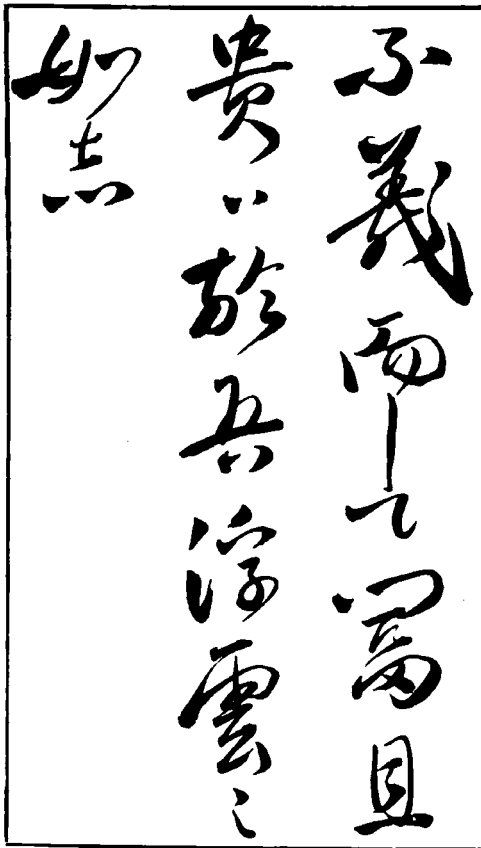 不義而して富且
貴ハ於吾浮雲之
如志